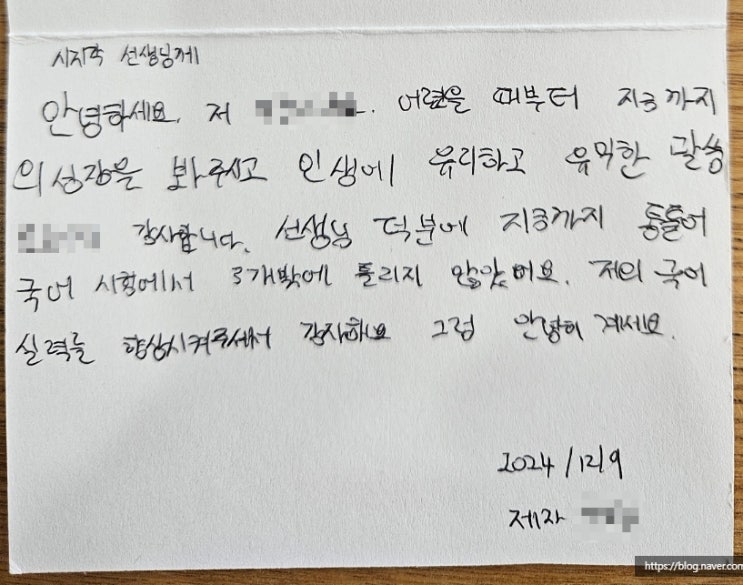 시지각 선생님께
안녕하세요. 저 어렸을 때부터 지금까지
의 성장을 봐주시고 인생에 유리하고 유익한 말씀
감사합니다. 선생님 덕분에 지금까지 통틀어
국어 시험에서 3개밖에 틀리지 않았어요. 저의 국어
실력을 향상시켜주셔서 감사해요 그럼 안녕히 계세요.
2024/12/9
제자
https://blog.naver.com